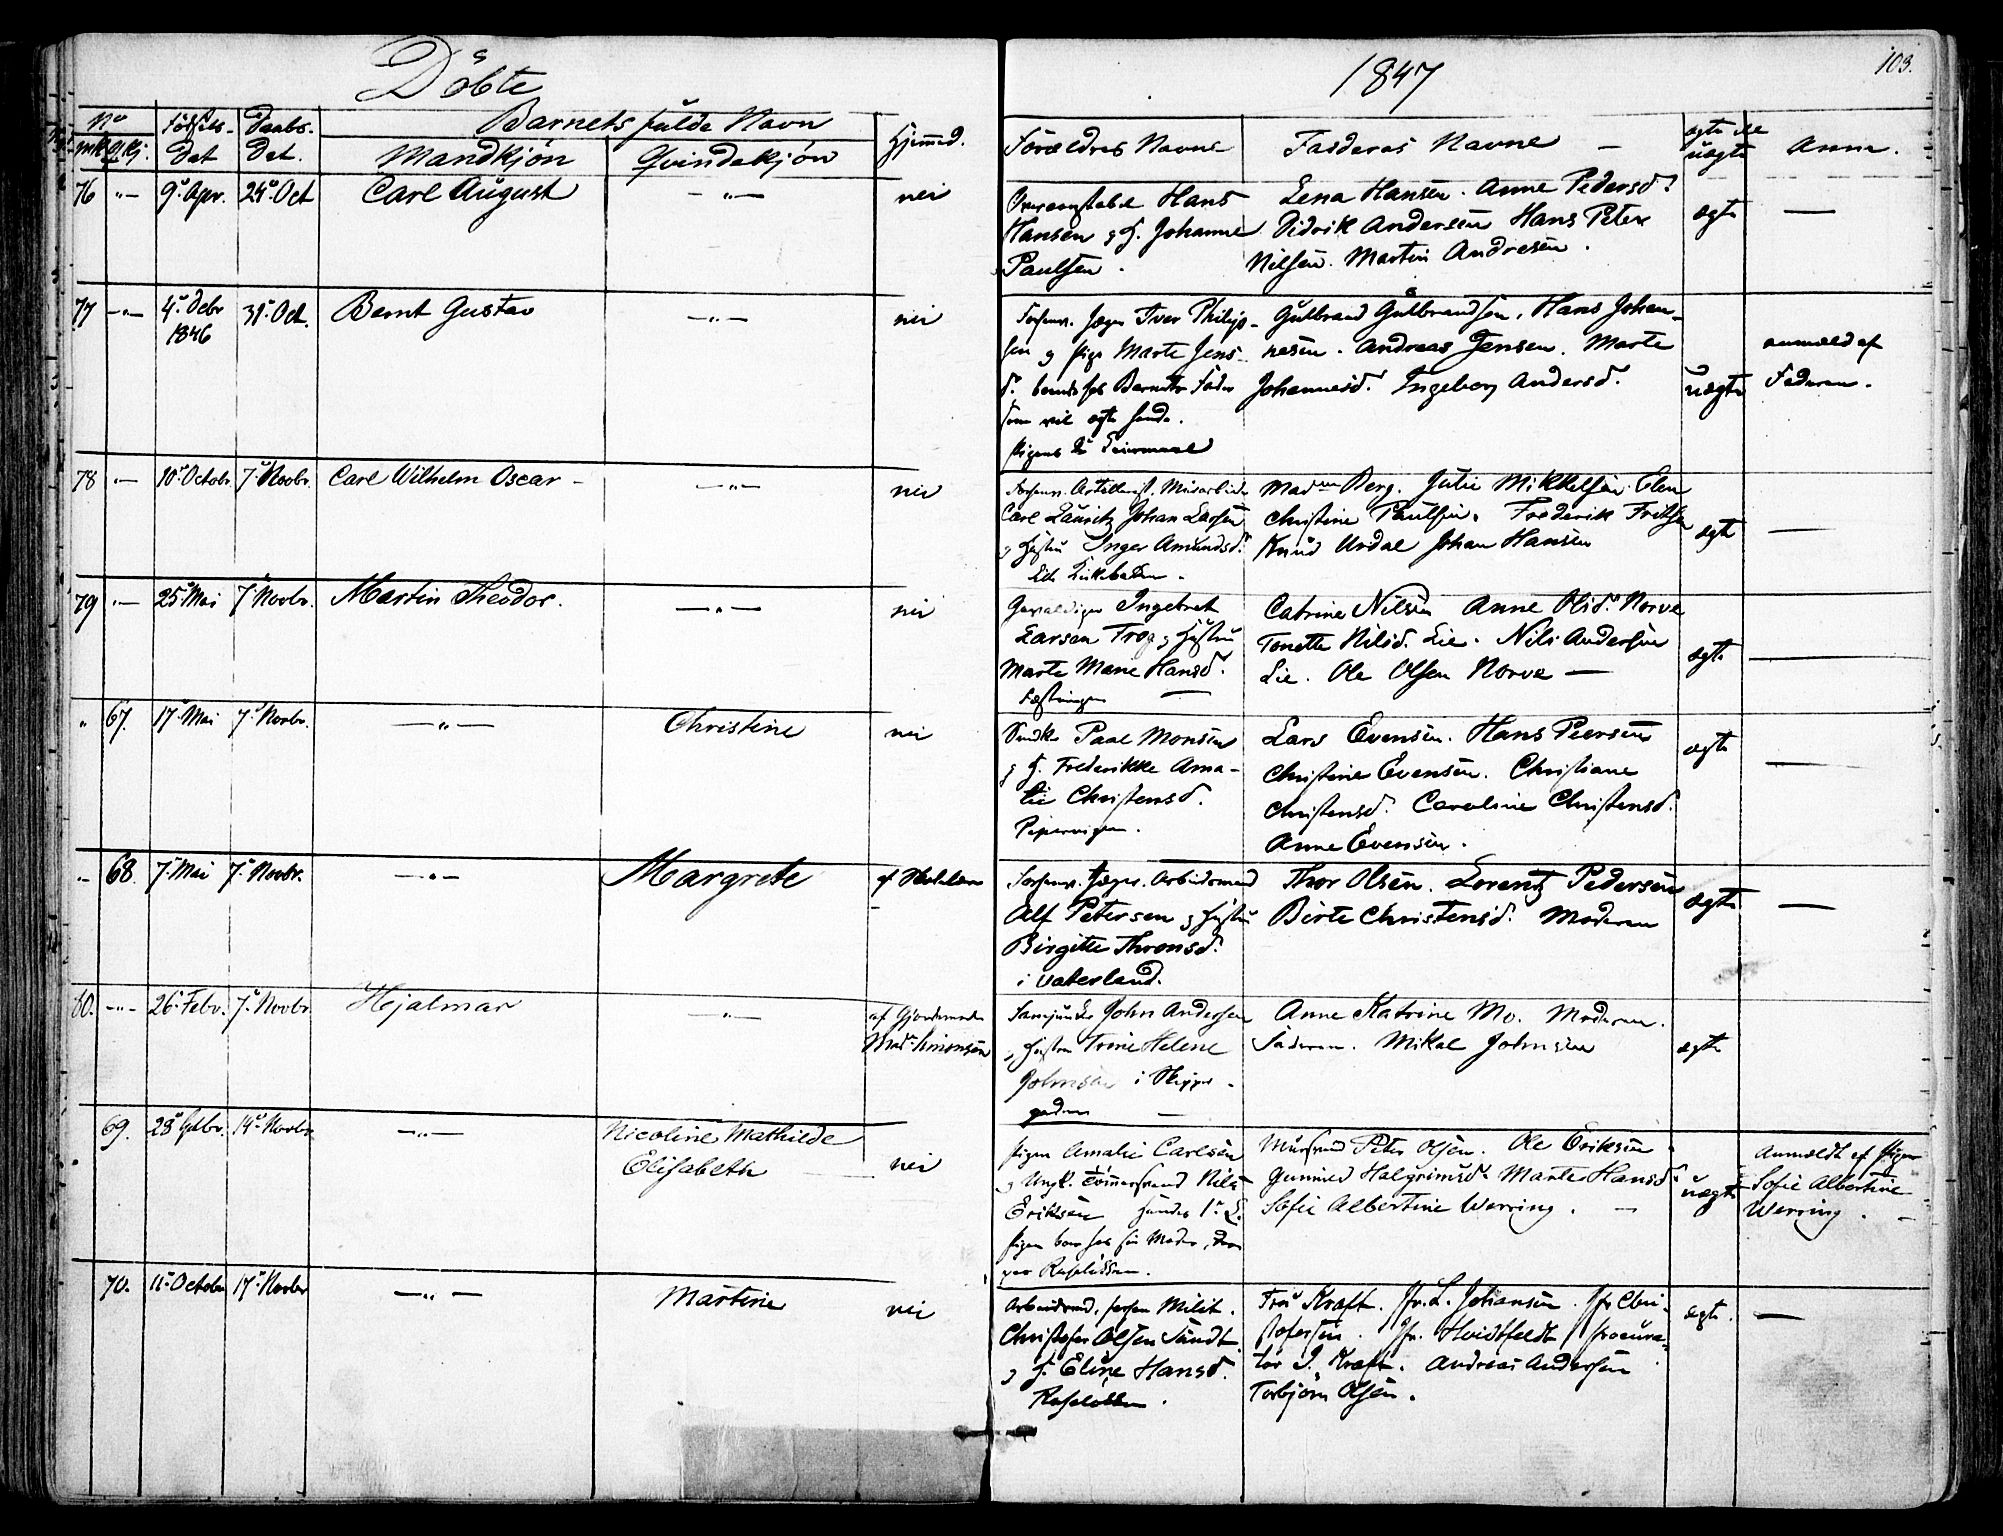 Döbte
1847
103.
No
Mk. Qkj.
Födsels-
Dat
Daabs-
Dat.
Barnets fulde Navn
Mandkjön
Qvindekjön
Hjemmed.
Forældres Navne
Faddernes Navne
ægte el
uægte
Anm.
76 -"- 9. Apr. 24. Oct Carl August -"- nei
Hans
Hansen og H. Johanne
Paulsen.
Lena Hansen. Anne Pedersd.
Didrik Andersen Hans Peter
Nilsen. Martin Andresen.
ægte
77 -"- 4. Debr 1846 31. Oct. Bernt Gustav -"- nei
Jæger Iver Philip-
sen og pige Marte Jens-
d. Barnets Fader
som vil ægte hende.
pigens 2 Leiermaal
Gulbrand Gulbrandsen. Hans Johan-
nesen. Andreas Jensen. Marte
Johannesd. Ingeborg Andersd.
uægte
anmeld af
Faderen.
78 -"- 10. Octobr. 7. Novbr. Carl Wilhelm Oscar - -"- nei
Carl Lauritz Johan Larsen
og Hustru Inger Amundsd.
Mad Berg. Julie Mikkelsen. Elen
Christine Paulsen. Frederik Fritsen
Knud Urdal Johan Hansen
ægte
79 -"- 25. Mai 7. Novbr. Martin Theodor. -"- nei
Gevaldiger Ingebret
Larsen Trog og Hustru
Marte Marie Hansd.
Fæstningen
Catrine Nilsen Anne Olsd. Norve
Tonette Nilsd. Lie. Nils Andersen
Lie. Ole Olsen Norve
ægte
" 67. 17. Mai 7. Novbr. -"- Christine nei
Paal Monsen
og H. Frederikke Ama-
lie Christensd.
Pipervigen.
Lars Evensen. Hans Peersen
Christine Evensen. Christiane
Christensd. Caroline Christensd.
Anne Evensen.
ægte
- 68. 7. Mai 7. Novbr. -"- Margrete
Jæger. Arbeidsmand
Alf Petersen og Hustru
Birgitte Thronsd.
i Vaterland.
Thor Olsen. Lorentz Pedersen
Birte Christensd. Moderen
ægte
80. -"- 26. Febr. 7. Novbr. Hjalmar -"- af Gjordemoder
Mad Simonsen
John Andersen
og Hustru Trine Helene
Johnsen i Skipper-
gaden
Anne Katrine Mo. Moderen.
Faderen. Mikal Johnsen
ægte
69. 28. 14. Novbr. -"- Nicoline Mathilde
Elisabeth nei
pigen Amalie Carlsen
og Ungk. Tömmermand Nils
Eriksen hendes 1. L.
pigen boer hos sin Moder,
Ruselökken.
Muursvend Peter Olsen. Ole Eriksen
Gunnild Halgrimsd. Marte Hansd.
Sofie Albertine Werring.
uægte
Anmeldt af pigen
Sofie Albertine
Werring.
70. 11. October 17. Novbr -"- Martine nei
Arbeidsmd. Milit.
Christofer Olsen Sundt
og H. Eline Hansd.
Ruselökken.
Fru Kraft. Jfr. L. Johansen. Jfr Chri-
stofersen. Jfr. Hvidtfeldt procura-
tor J. Kraft. Andreas Andersen
Torbjörn Olsen.
ægte.